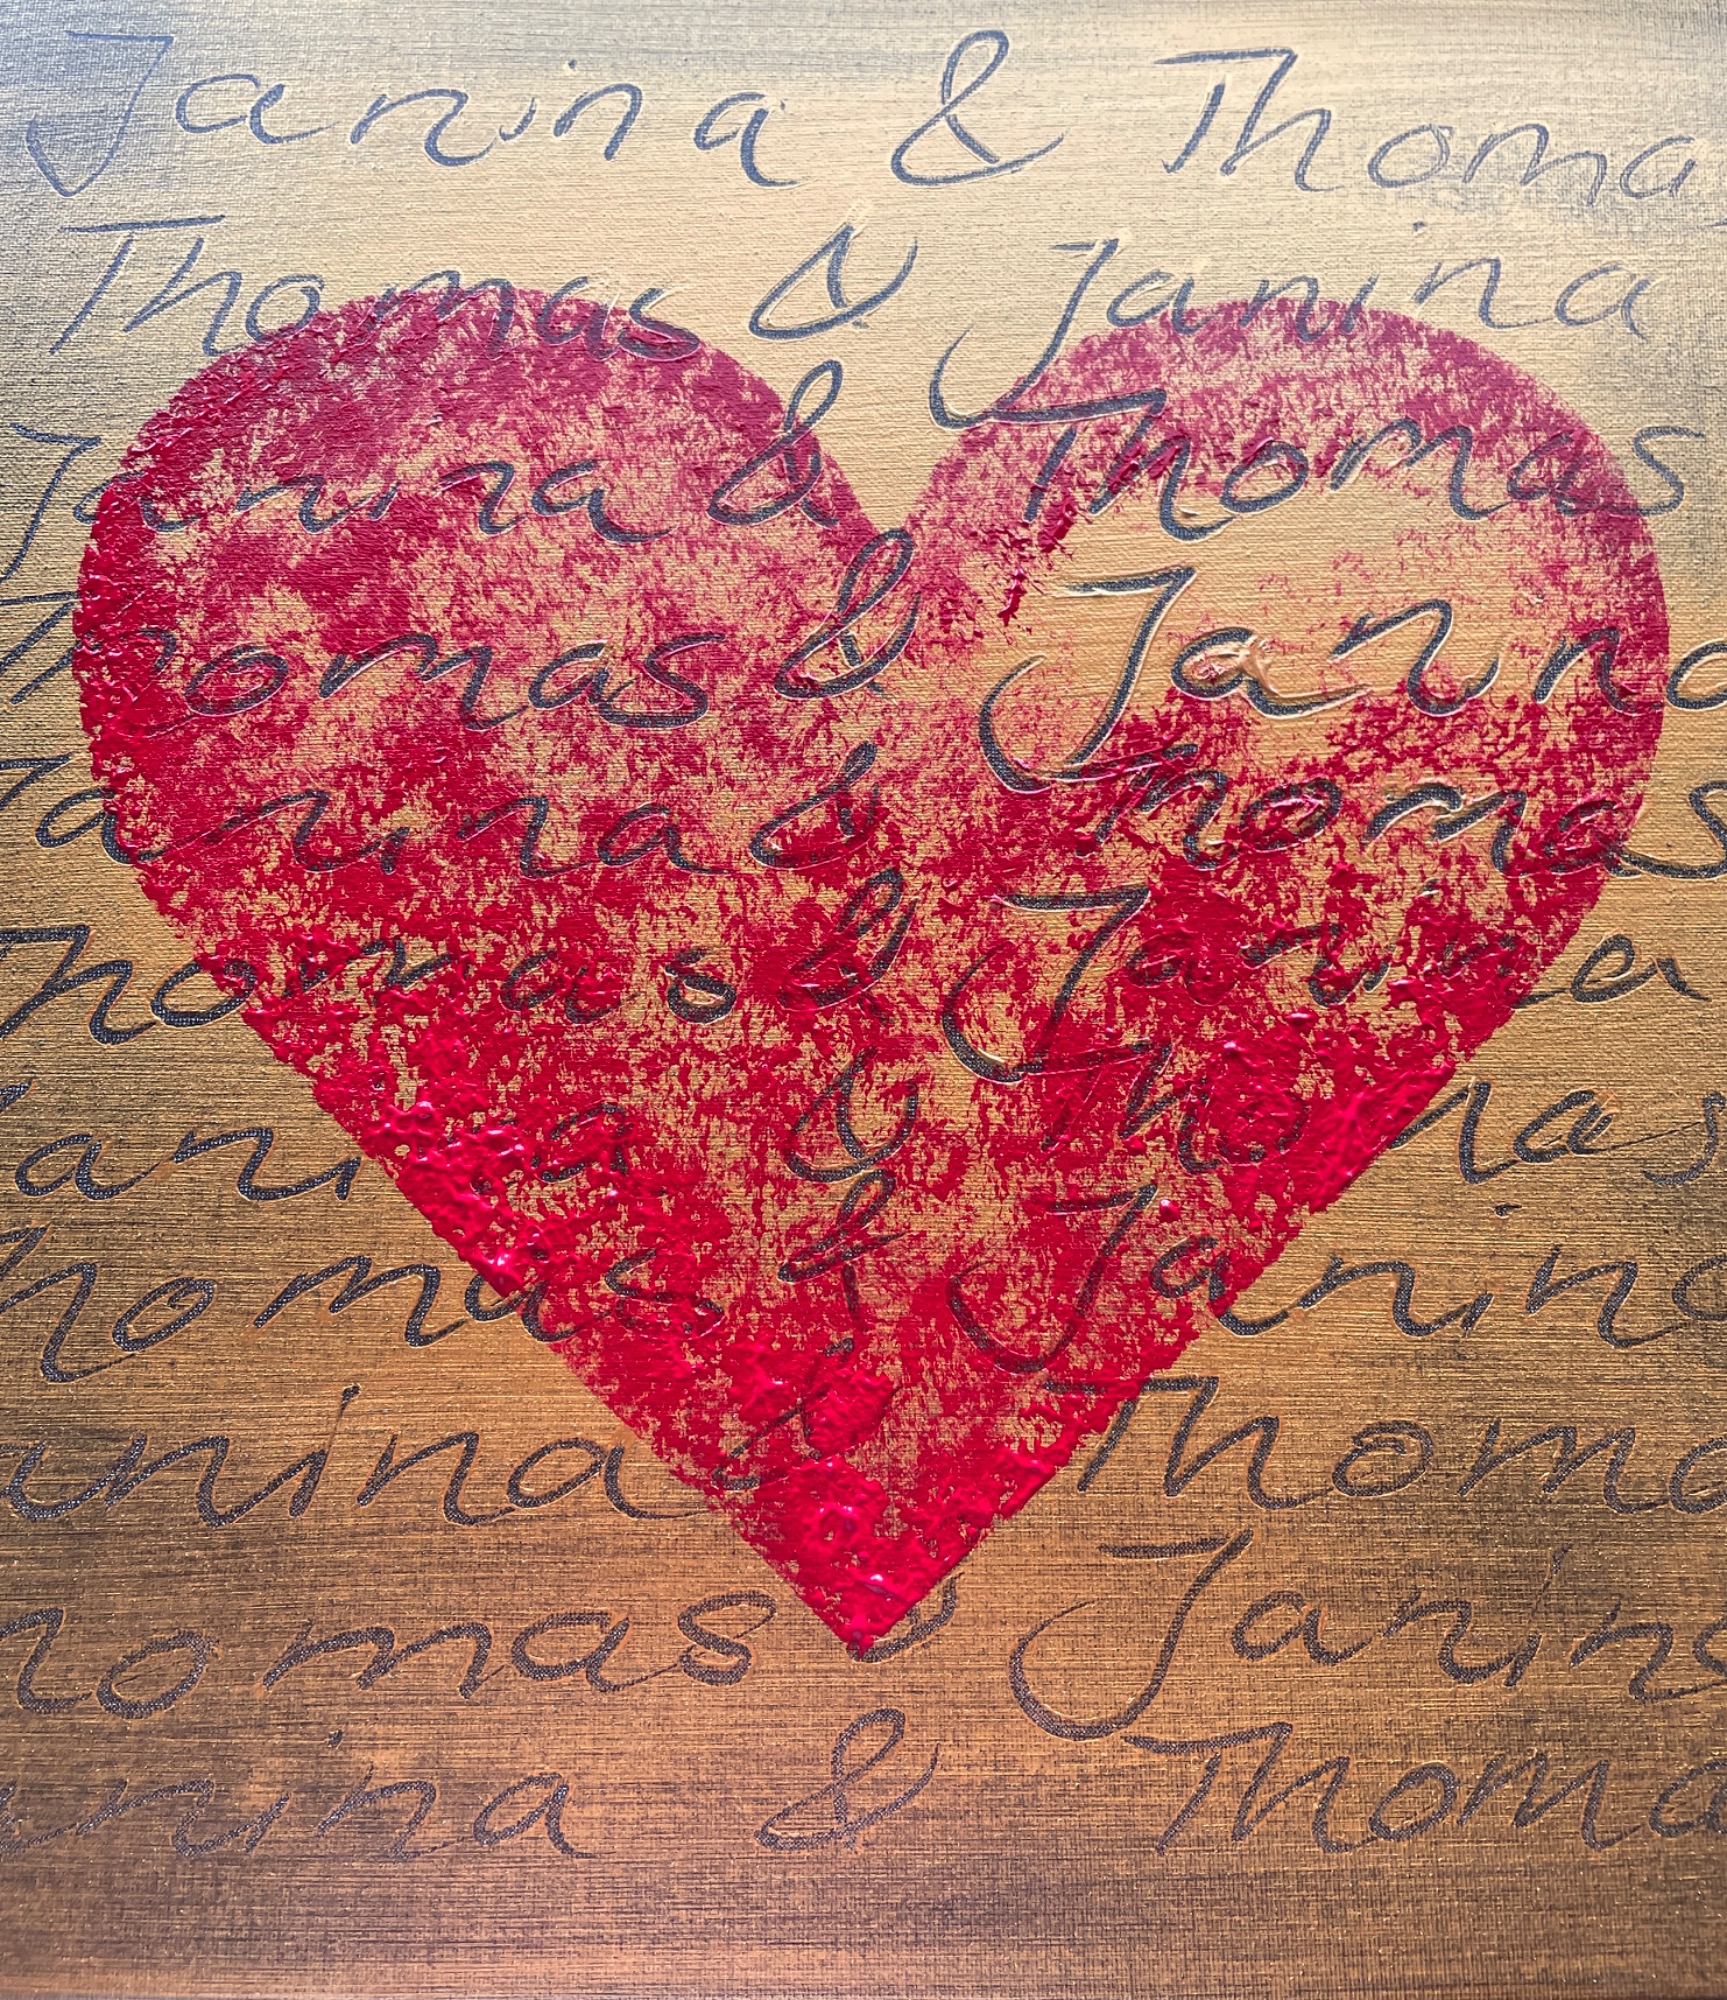 Janina & Thomas
Thomas & Janina
Janina & Thomas
Thomas & Janina
Janina & Thomas
Thomas & Janina
Jani na & Thomas
Thomas & Janina
anina & Thoma
homas & Janina
anina & Thoma